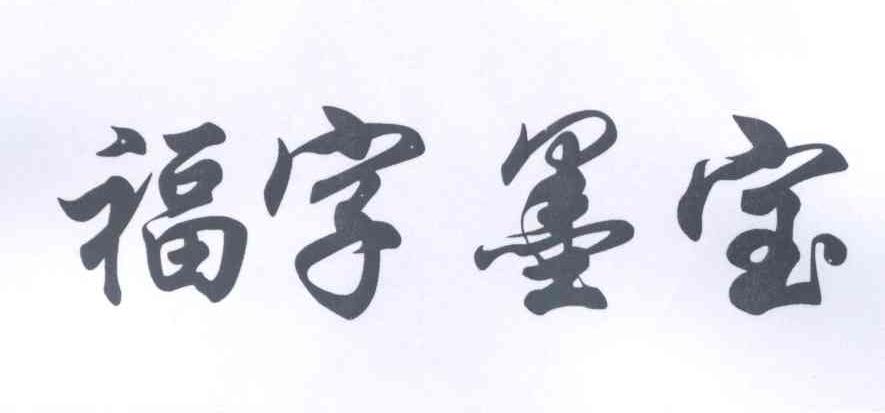 福字墨宝